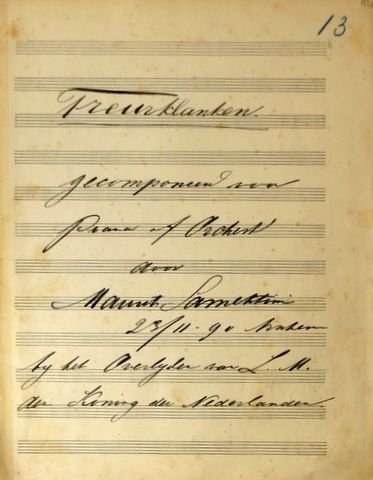 13
Treurklanken.
gecomponeerd voor
Piano of Orchest
door
Maurits Samehtini
23/11-90 Arnhem
bij het Overlijden van Z. M.
den Koning der Nederlanden.